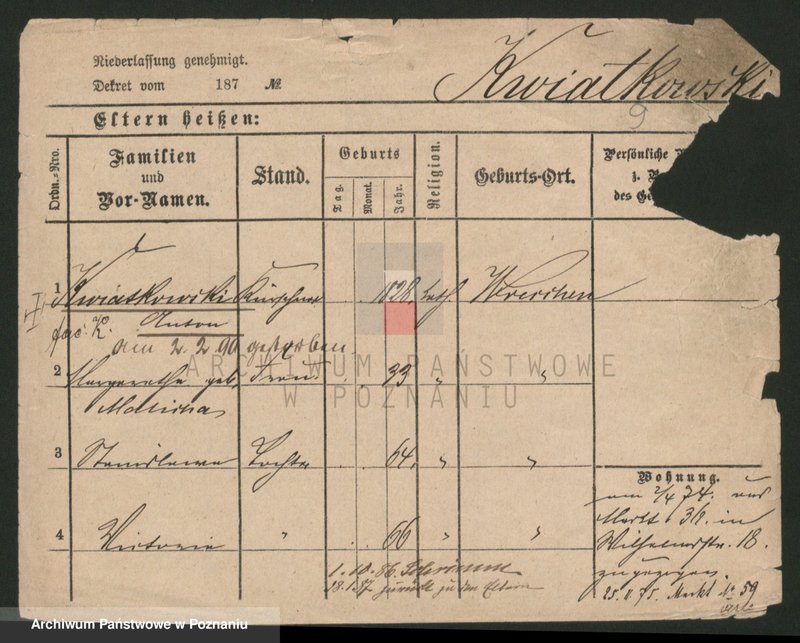 Niederlassung genehmigt.
Dekret vom 187 №
Kwiatkowski
9
Eltern heißen:
Ordn.-Nro.
Familien
und
Vor-Namen.
Stand.
Geburts
Tag.
Monat.
Jahr.
Religion.
Geburts-Ort.
Persönliche
z.
des
1 Kwiatkowski Kürschner 1828. kath. Wreschen
Anton
am 2.2.90 gestorben
2 Margarethe geb. Frau 33 " "
3 Stanislawa Tochter 64. " "
4 Victoria " 66 " "
Wohnung.
am 2/4 74. aus
Markt 36. in
Wilhelmstr. 18.
zugezogen.
25.11.75. Markt № 59
1.10.86. Schrimm
18.1.87 zurück zu den Eltern
ARCHIWUM PAŃSTWOWE
W POZNANIU
Archiwum Państwowe w Poznaniu